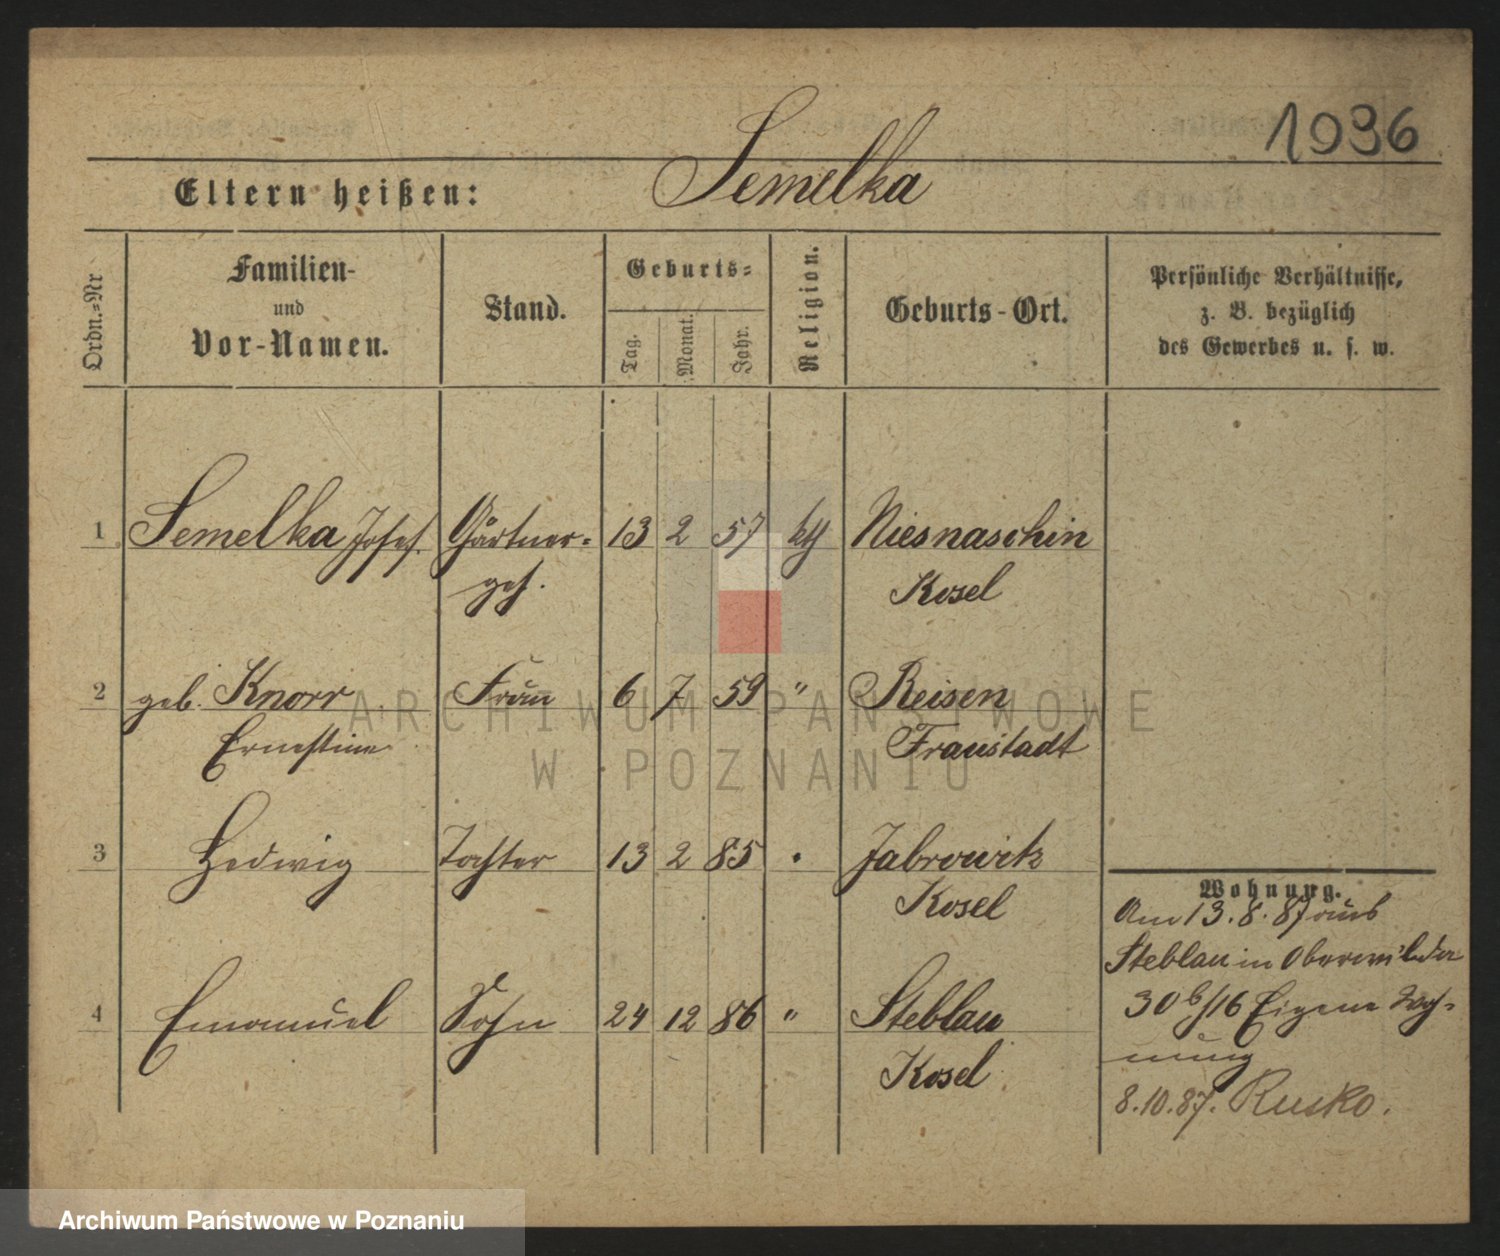 1936
Eltern heißen: Semelka
Ordn.=Nr
Familien-
und
Vor-Namen.
Stand.
Geburts=
Tag.
Monat.
Jahr.
Religion.
Geburts-Ort.
Persönliche Verhältnisse,
z. B. bezüglich
des Gewerbes u. s. w.
1 Semelka Josef. Gärtner= 13 2 57 kth Niesnaschin
geh. Kosel
2 geb. Knorr Frau 6 7 59 " Reisen
Ernestine Fraustadt
3 Hedwig Tochter 13 2 85 " Jabrowitz
Kosel
4 Emanuel Sohn 24 12 86 " Steblau
Kosel
Wohnung.
Am 13.8.87 aus
Steblau in Oberwilda
30b/16 Eigene Woh-
nung
8.10.87. Rusko.
ARCHIWUM PAŃSTWOWE
W POZNANIU
Archiwum Państwowe w Poznaniu